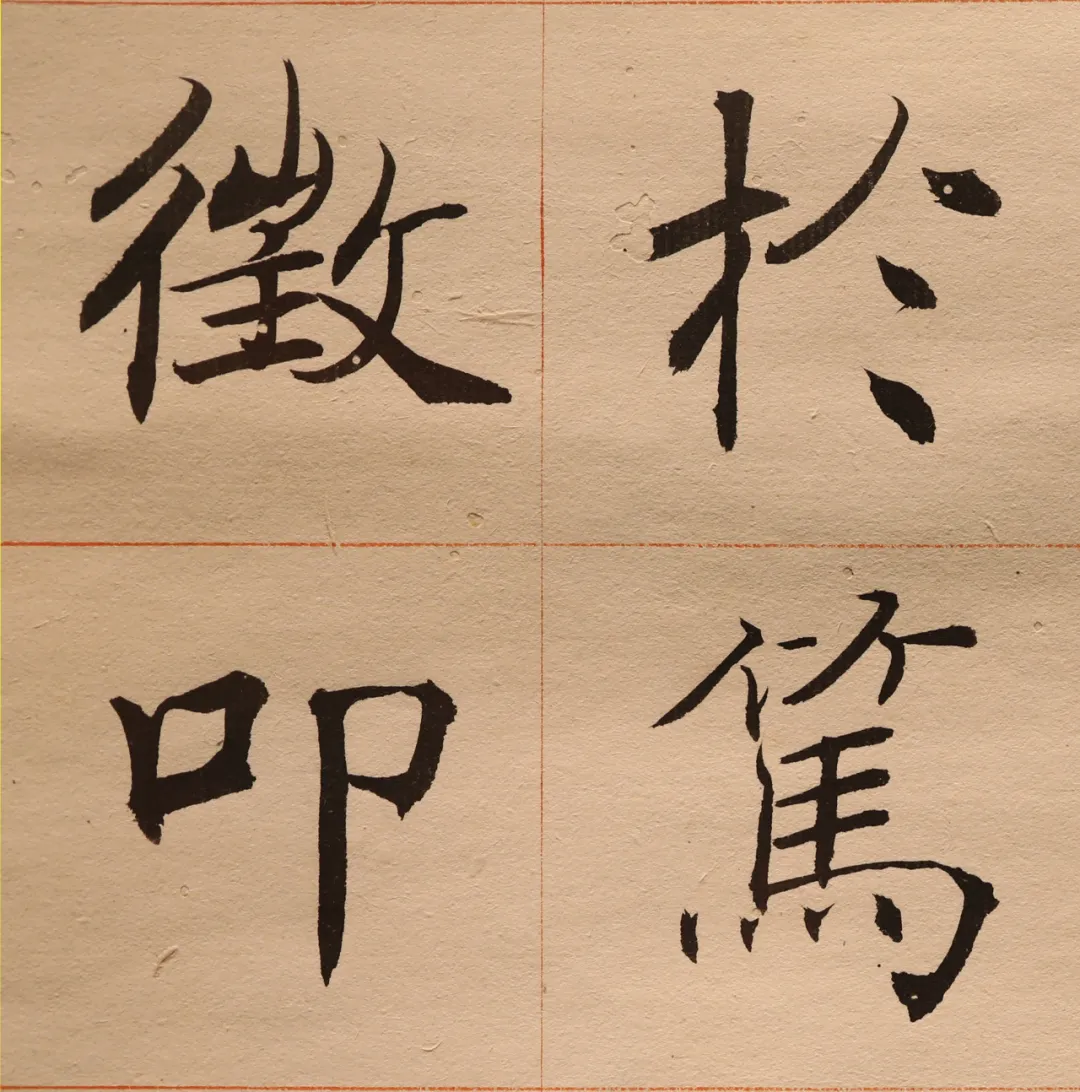 於篤
徵叩